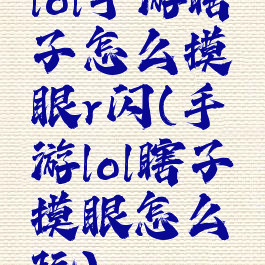 lol手游瞎
子怎么摸
眼r闪(手
游lol瞎子
摸眼怎么